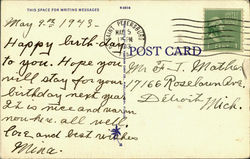 THIS SPACE FOR WRITING MESSAGES
May 4th 1943.
Happy birthday
to you. Hope you
will stay for your
birthday next year
It is nice and warm
now here. all well
love, and best wishes
Mina.
SAINT PETERSBURG
MAY 5
PM
POST CARD
Mr. F. J. Mather
17166 Roselawn Ave,
Detroit, Mich.